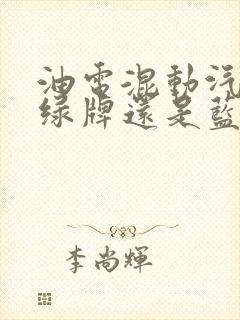 油電混動汽
綠牌還是藍
李尚輝